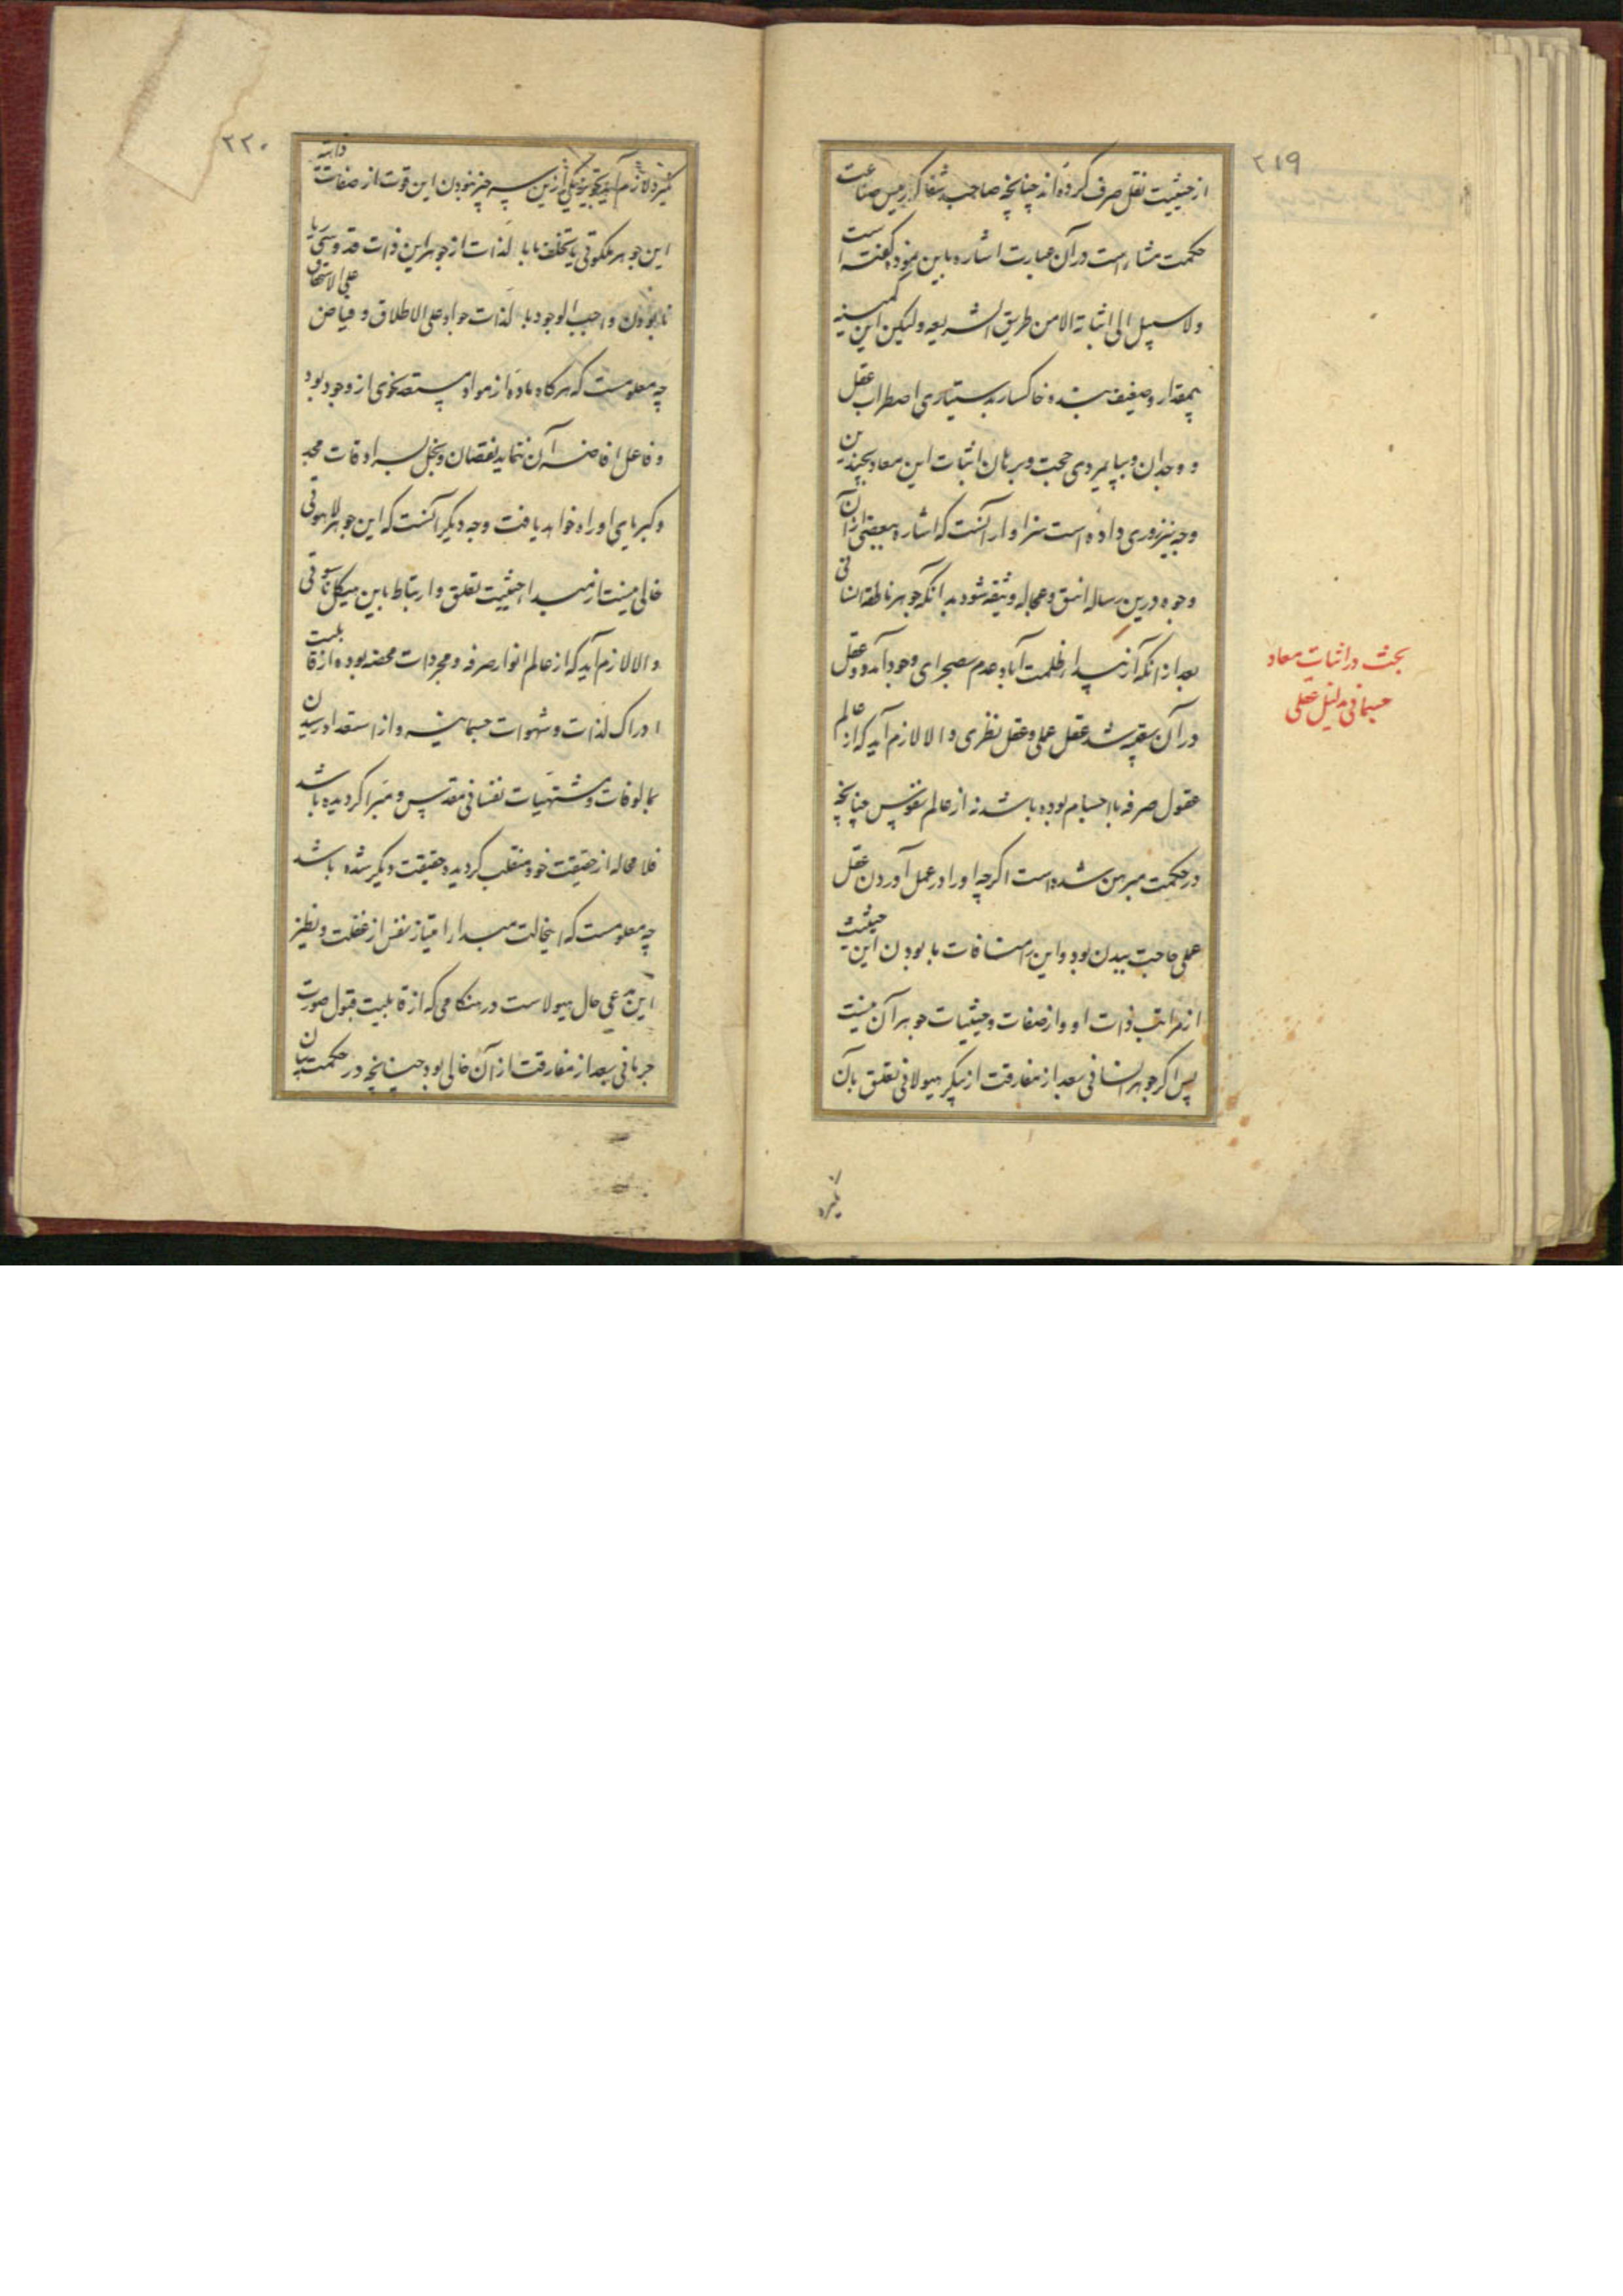 ۲۱۹
از حیثیت نقل صرف کرده‌اند چنانچه صاحب شفا که رییس صناعت
حکمت مشاء است در آن عبارت اشاره باین نموده گفته است
ولا سبیل الی اثباته الا من طریق الشریعه ولیکن این کمینه
بیمقدار و ضعیف بنده خاکسار بدستیاری اضطراب عقل
و وجدان و بپایمردی حجت و برهان اثبات این معاد بچندین
وجه نیز روی داده است سزاوار آنست که اشاره ببعضی از آن
وجوه درین رساله انیق و عجاله وثیقه شود بدانکه جوهر ناطقه انسانی
بعد از آنکه از ظلمت آباد عدم بصحرای وجود آمد و عقل
در آن بقیه شد عقل عملی و عقل نظری و الا لازم آید که از عالم
عقول صرفه یا اجسام بوده باشد نه از عالم نفوس چنانچه
در حکمت مبرهن شده است اگرچه او را در عمل آوردن عقل
عملی حاجت ببدن بود و این را منافات با بودن این حیثیت
از مراتب ذات او و از صفات و حیثیات جوهر آن نیست
پس اگر جوهر انسانی بعد از مفارقت از پیکر هیولانی تعلق بآن
بحث در اثبات معاد
جسمانی بدلیل عقلی
نگیرد
۲۲۰
نگیرد لازم آید یکی ازین سه چیز نبودن این قوت از صفات ذاتیه
این جوهر ملکوتی یا تخلف ما بالذات از جوهر این ذات قدوسی یا
نابودن واجب الوجود بالذات جواد علی الاطلاق و فیاض علی الاستحقاق
چه معلومست که هرگاه ماده از مواد مستعد نحوی از وجود بود
و فاعل افاضه آن ننماید نقصان و بخل بسرادقات مجد
و کبریای او راه خواهد یافت وجه دیگر آنست که این جوهر لاهوتی
خالی نیست از مبدا حیثیت تعلق و ارتباط باین هیکل ناسوتی
و الا لازم آید که از عالم انوار صرفه و مجردات محضه بوده از قابلیت
ادراک لذات و شهوات جسمانیه و از استعداد رسیدن
بمالوفات و مشتهیات نفسانی مقدس و مبرا گردیده باشد
فلا محاله از حقیقت خود منقلب گردیده حقیقت دیگر شده باشد
چه معلومست که اینحالت مبدا امتیاز نفس از عقلست و نظیر
این مدعی حال هیولاست در هنگامی که از قابلیت قبول صورت
جرمانی بعد از مفارقت از آن خالی بود چنانچه در حکمت بیان